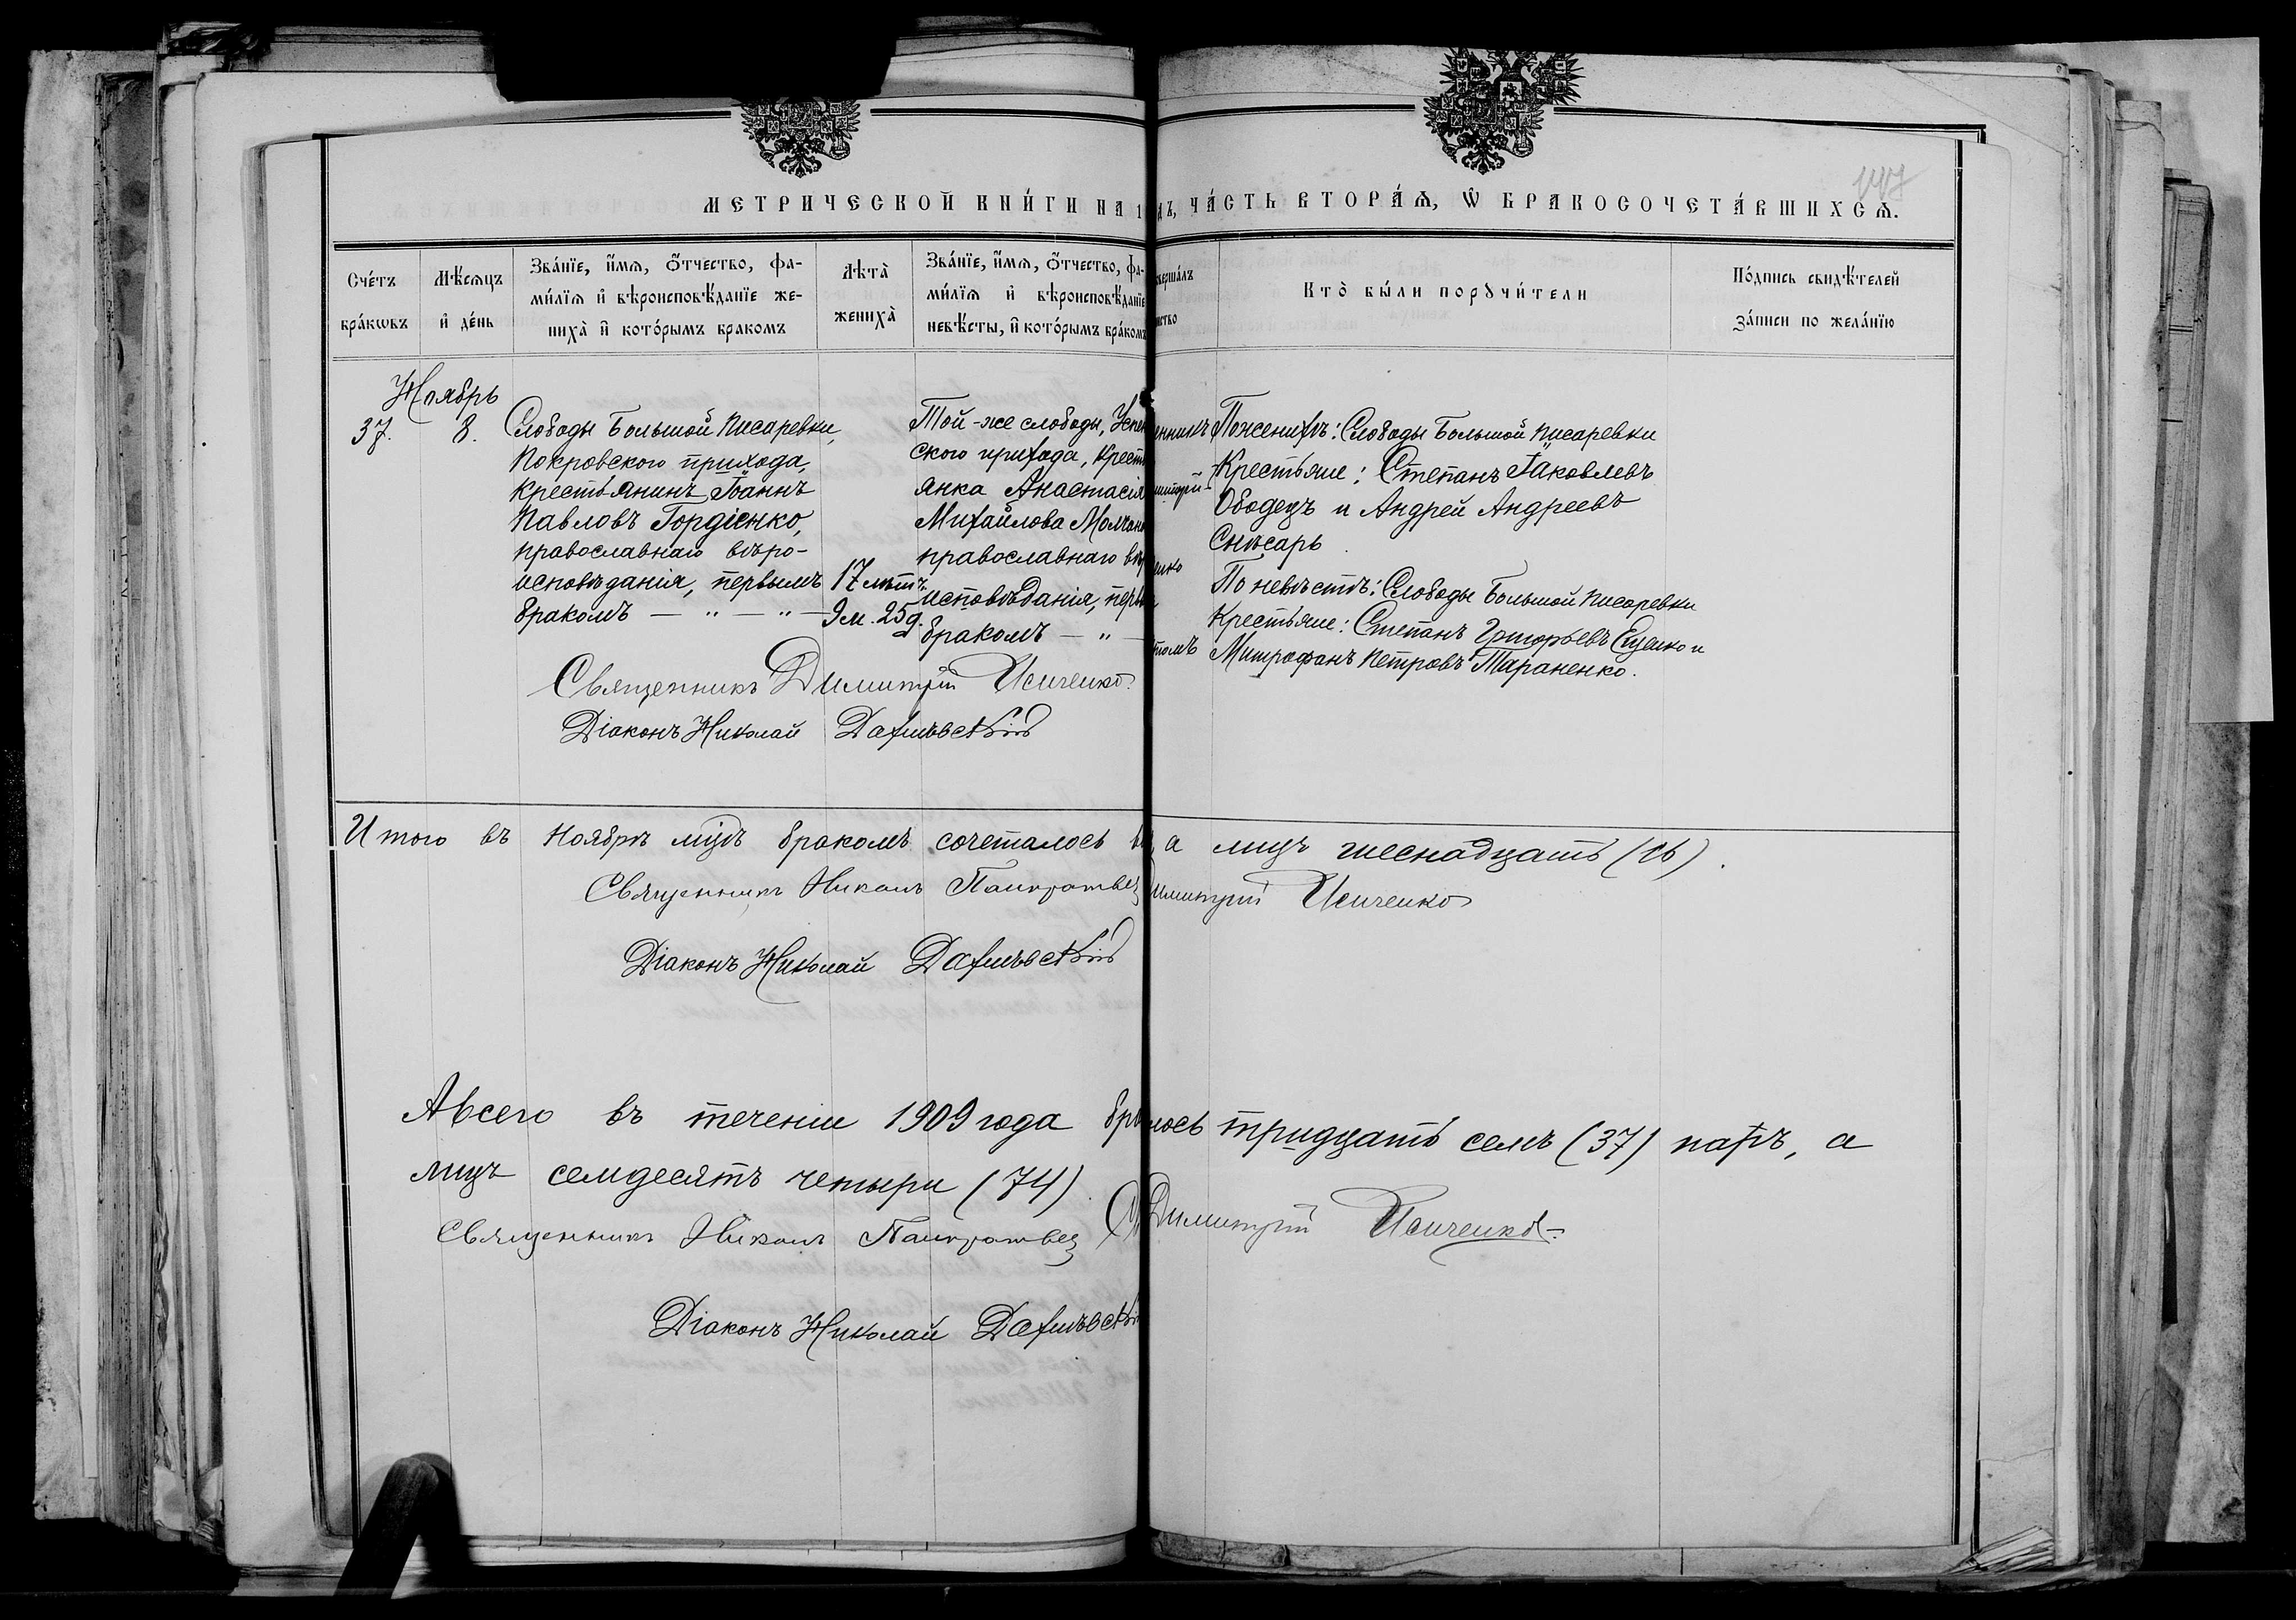 МЕТРИЧЕСКОЙ КНИ́ГИ НА 1
ЧА́СТЬ ВТОРА́Ѧ, Ѡ БРАКОСОЧЕТА́ВШИХСѦ.
147
Сче́тъ бра́кѡвъ
Мѣ́сѧцъ и҆ де́нь
Зва́нїе, и҆́мѧ, ѻ҆́тчество, фа-
ми́лїѧ и҆ вѣроисповѣ́данїе же-
ниха̀ и҆ кото́рымъ бракомъ
Лѣ́та̀ жениха̀
Зва́нїе, и҆́мѧ, ѻ҆́тчество, фа-
ми́лїѧ и҆ вѣроисповѣ́данїе
невѣ́сты, и҆ кото́рымъ бра́комъ
верша́лъ
нство
Кто̀ бы́ли порꙋчи́тели
По́дпись свидѣ́телей
за́писи по жела́нїю
Ноябрь
37. 8.
Слободы Большой Писаревки,
Покровского прихода,
крестьянинъ Іоаннъ
Павловъ Гордіенко,
православнаго вѣро-
исповѣданія, первымъ
бракомъ — „ — „ —
17 лѣтъ
9 м. 25 д.
Той-же слободы, Успен
ского прихода, крест
янка Анастасія
Михайлова Молчан
православнаго вѣр
исповѣданія, перв
бракомъ — „ —
енникъ
митрій-
енко
номъ
По женихѣ: Слободы Большой Писаревки
Крестьяне: Степанъ Іаковлевъ
Ободецъ и Андрей Андреевъ
Снѣсарь.
По невѣстѣ: Слободы Большой Писаревки
Крестьяне: Степанъ Григорьевъ Сущенко и
Митрофанъ Петровъ Тараненко.
Священникъ Димитрій Исиченко.
Діаконъ Николай Дахнѣвскій
Итого въ Ноябрѣ м-цѣ бракомъ сочеталось
а лицъ шеснадцать (16).
Священникъ Николъ Панкратьев
имитрій Исиченко
Діаконъ Николай Дахнѣвскій
А всего въ теченіи 1909 года бра
лось тридцать семъ (37) паръ, а
лицъ семдесятъ четыри (74).
Священникъ Николъ Панкратьев
Димитрій Исиченко
Діаконъ Николай Дахнѣвскі